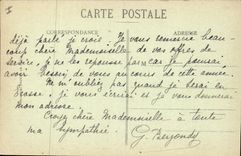 CARTE POSTALE
CORRESPONDANCE ADRESSE
déjà parlé je crois. Je vous remercie beau-
coup chère Mademoiselle de vos offres de
service, je ne les repousse pas car je pourrai
avoir besoin de vous au cours de cette année.
Ne m'oubliez pas quand je serai en
Grasse, je vous écrirai et je vous donnerai
mon adresse.
Croyez chère Mademoiselle à toute
ma sympathie.